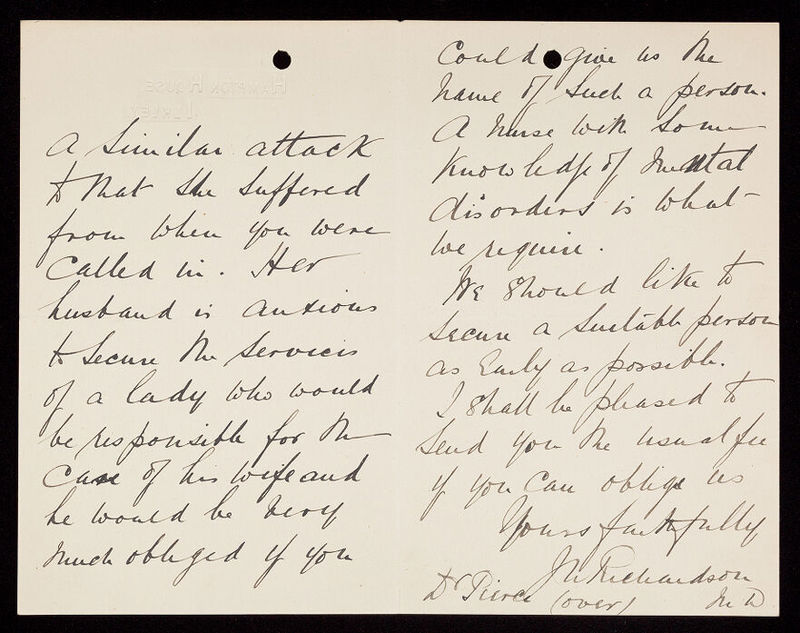 HAMPTON HOUSE
A similar attack
to that she suffered
from when you were
called in. Her
husband is anxious
to secure the services
of a lady who would
be responsible for the
case of his wife and
he would be very
much obliged if you
could give us the
name of such a person.
A nurse with some
knowledge of mental
disorders is what
we require.
We should like to
secure a suitable person
as early as possible.
I shall be pleased to
send you the usual fee
if you can oblige us
Yours faithfully
J W Richardson
Dr Pierce (over) M D